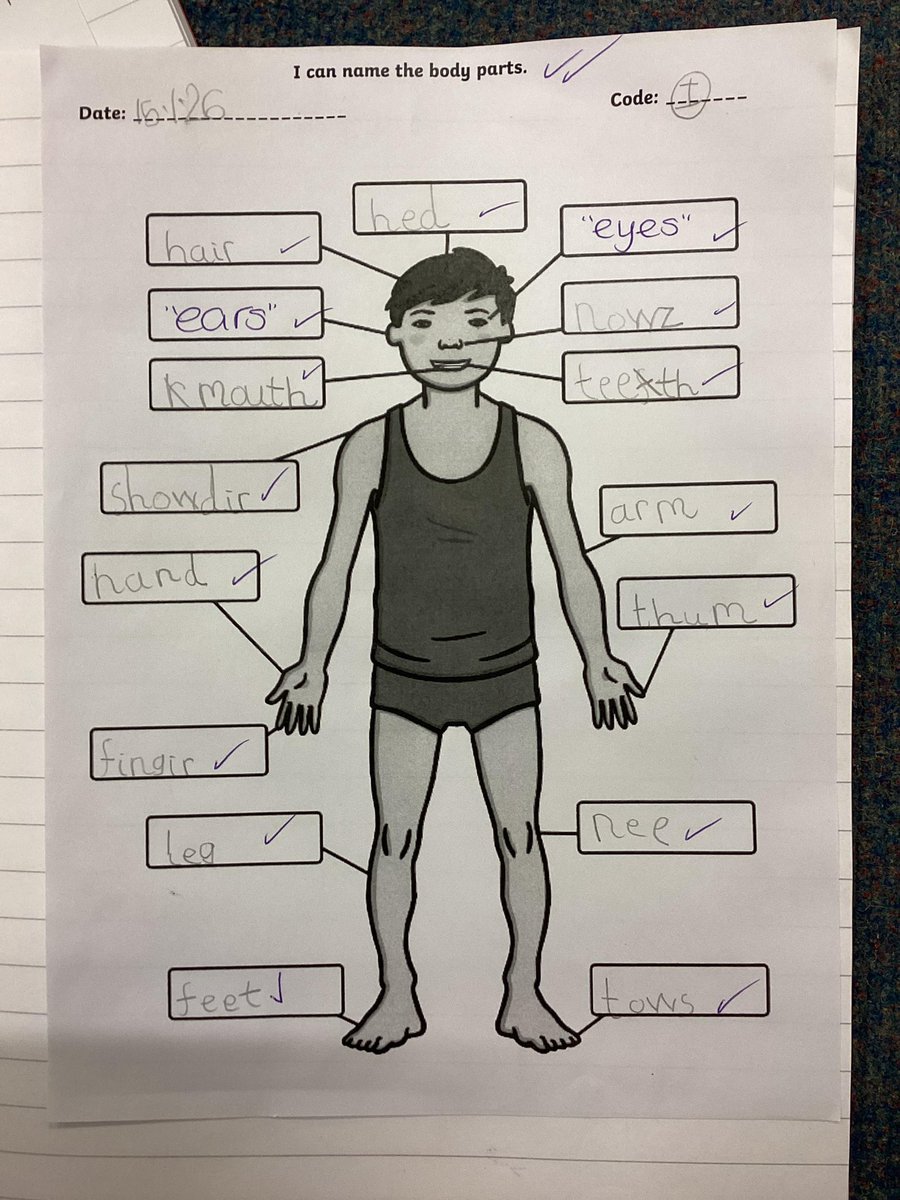 I can name the body parts.
Date: 15.1.26
Code: I
hed
hair
"eyes"
"ears"
nowz
mouth
teeth
showdir
arm
hand
thum
fingir
leg
nee
feet
tows